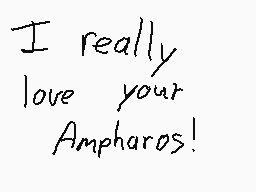 I really
love your
Ampharos!